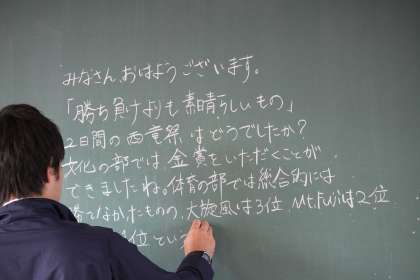 みなさん、おはようございます。
「勝ち負けよりも素晴らしいもの」
2日間の西竜祭はどうでしたか?
文化の部では、金賞をいただくことが
できましたね。体育の部では総合的には
勝てなかったものの、大旋風は3位、Mt.Fujiは2位、
位という